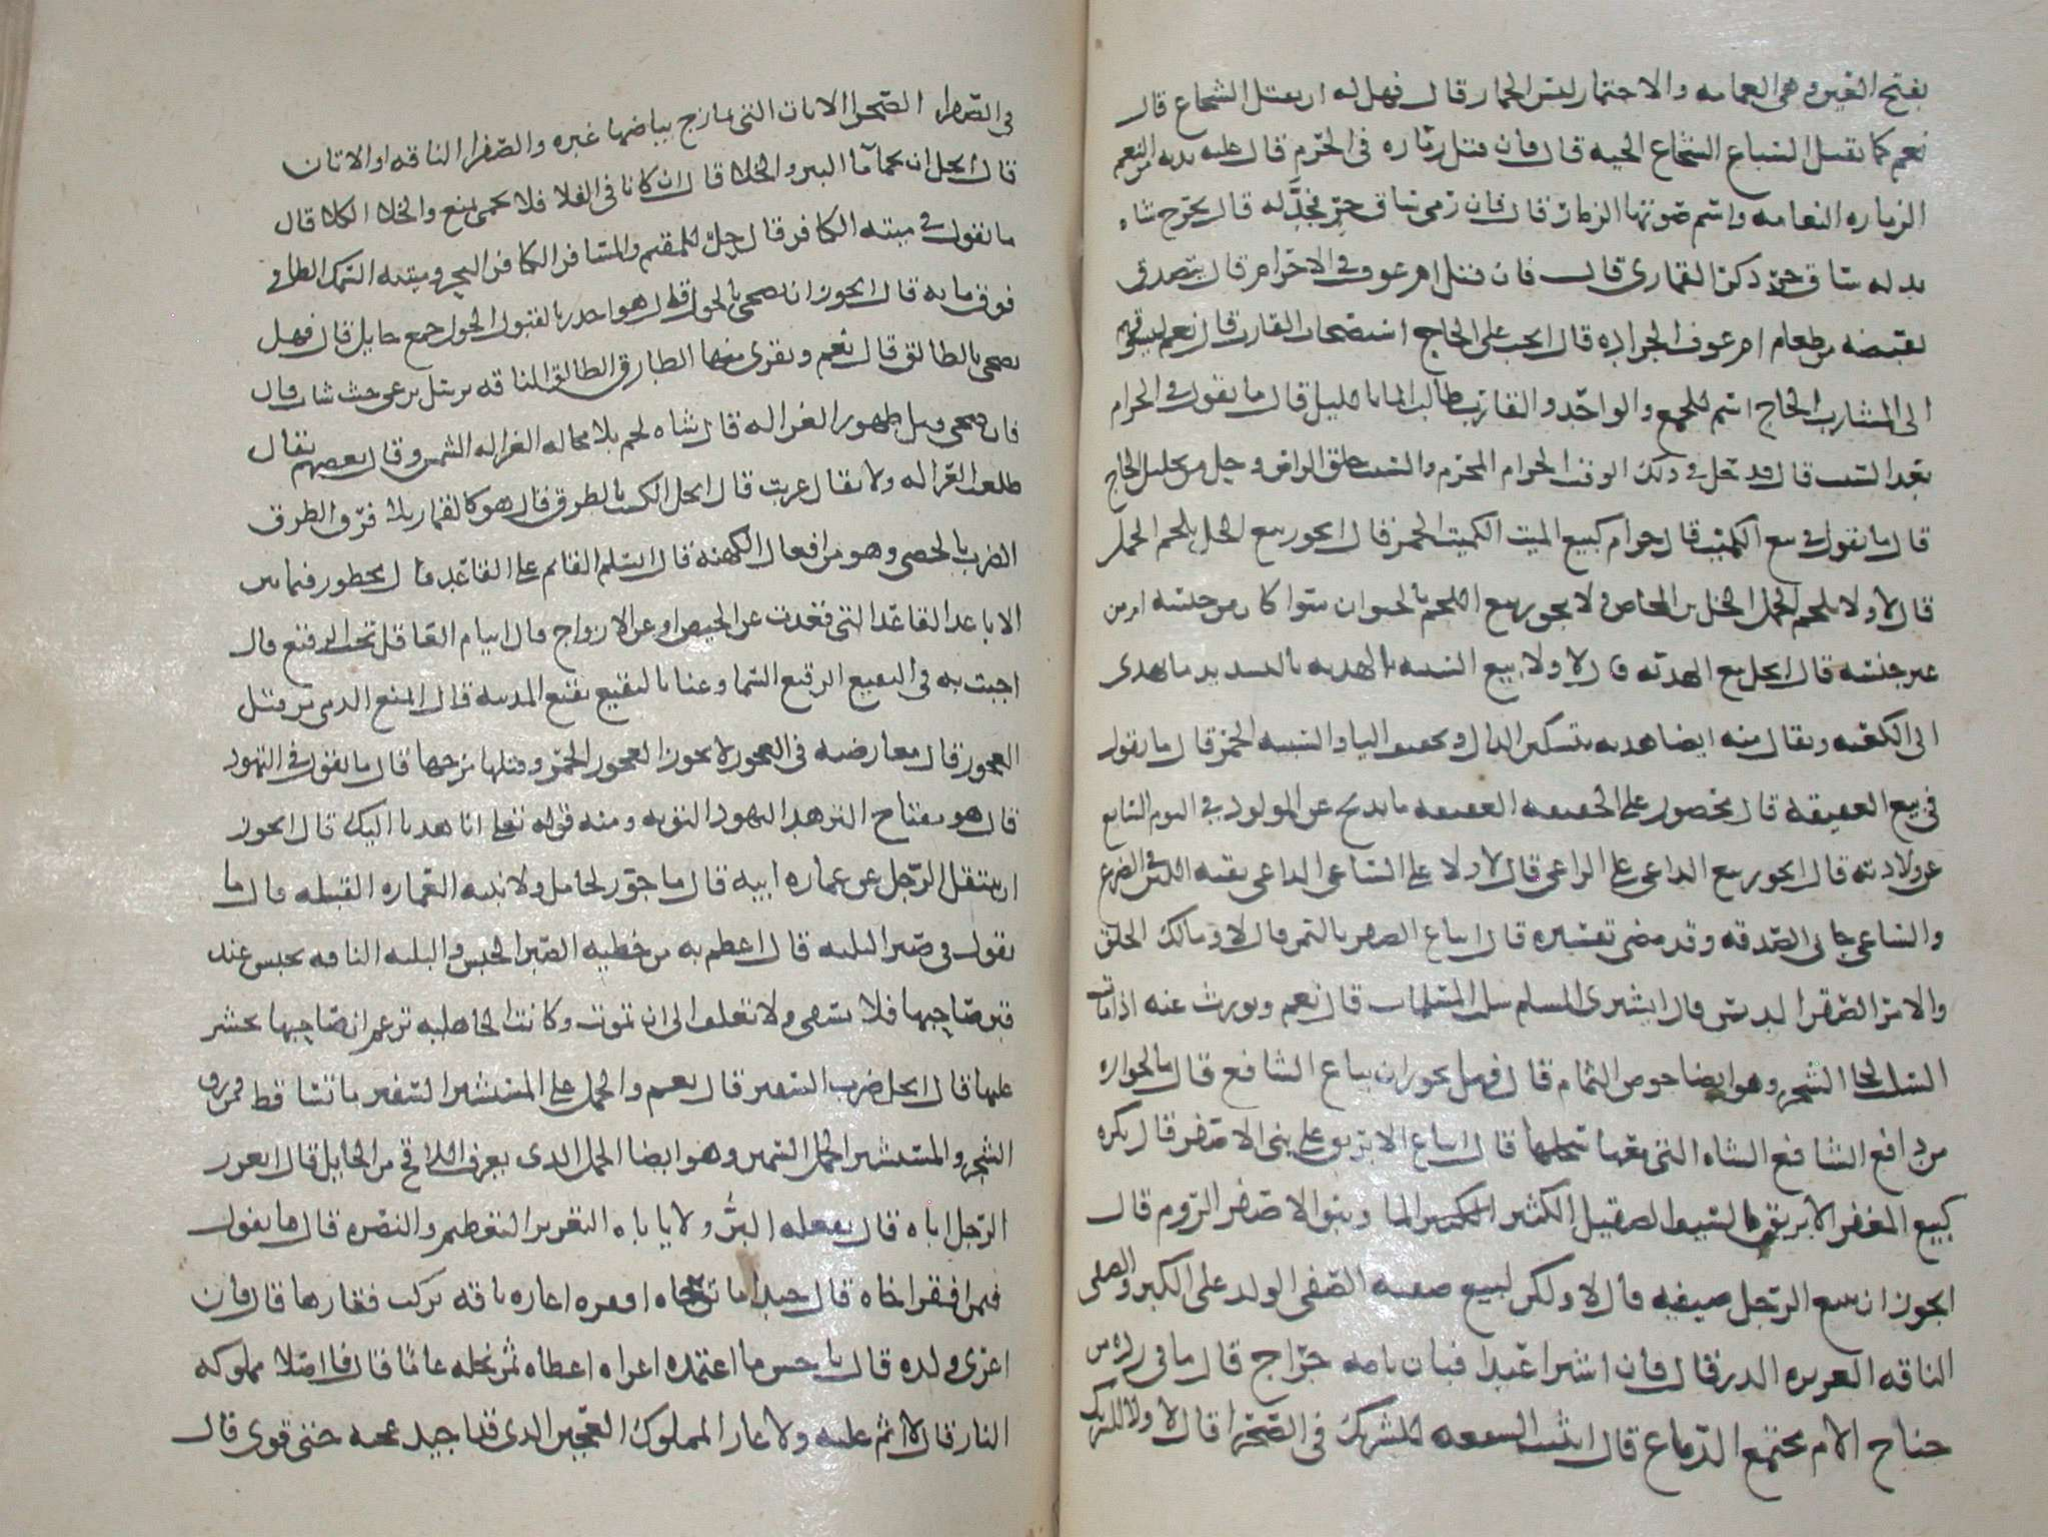 بفتح الغين وهي العمامه والاختمار لبس الخمار قال فهل له ان يقتل الشجاع قال
نعم كما يقتل السباع الشجاع الحيه قال فان قتل زماره في الحرم قال عليه بدنه من النعم
الزماره النعامه واسم صوتها الزمار قال فان رمى ساق حر فجدله قال يخرج شاه
بدله ساق حر ذكر القماري قال فان قتل ام عوف في الاحرام قال يتصدق
بقبضه من طعام ام عوف الجراده قال ايجب على الحاج استصحاب القارب قال نعم ليسوقهم
الى المشارب الحاج اسم للجمع والواحد والقارب طالب الما بالليل قال ما تقول في الحرام
بعد السبت قال قد حل في ذلك الوقت الحرام المحرم والسبت حلق الراس وحل من تحليل الحاج
قال ما تقول في بيع الكميت قال حرام كبيع الميت الكميت الخمر قال ايجوز بيع الخل بلحم الجمل
قال لا ولا بلحم الحمل الخل ابن المخاض ولا يجوز بيع اللحم بالحيوان سوا كان من جنسه او من
غير جنسه قال ايحل بيع الهديه قال لا ولا بيع السبيه الهديه بالتشديد ما يهدى
الى الكعبه ويقال فيه ايضا هديه بتسكين الدال وتخفيف اليا والسبيه الخمر قال ما تقول
في بيع العقيقه قال محضور على الحقيقه العقيقه ما يذبح عن المولود في اليوم السابع
من ولادته قال ايجوز بيع الداعي على الراعي قال لا ولا على الساعي الداعي بقيه اللبن في الضرع
والساعي جابي الصدقه وقد مضى تفسيره قال ايباع الصقر بالتمر قال لا ومالك الخلق
والامر الصقر الدبس قال ايشتري المسلم سلب المسلمات قال نعم ويورث عنه اذا مات
السلب لحا الشجر وهو ايضا خوص الثمام قال فهل يجوز ان يباع الشافع قال ما لجوازه
من دافع الشافع الشاه التي معها سخلها قال ايباع الابريق على بني الاصفر قال يكره
كبيع المغفر الابريق السيف الصقيل الكثير الما وبنو الاصفر الروم قال
ايجوز ان يبيع الرجل صيفيه قال لا ولكن ليبيع صفيه الصفي الولد على الكبر والصفي
الناقه الغزيره الدر قال فان اشترا عبدا فبان بامه جراح قال ما في رده من
جناح الام مجتمع الدماغ قال اتثبت الشفعه للشريك في الصحرا قال لا ولا للشريك
في الصفرا الصحرا الاتان التي يمازج بياضها غبره والصفرا الناقه او الاتان
قال ايحل ان يحما ما البير والخلا قال ان كانا في الفلا فلا يحمى يمنع والخلا الكلا قال
ما تقول في ميته الكافر قال حل للمقيم والمسافر الكافر البحر وميتته السمك الطافي
فوق مايه قال ايجوز ان يضحى بالحول قال هو اجدر بالقبول الحول جمع حايل قال فهل
يضحى بالطالق قال نعم ويقرى منها الطارق الطالق الناقه ترسل ترعى حيث شات قال
فان ضحى قبل ظهور الغزاله قال شاه لحم بلا محاله الغزاله الشمس وقال بعضهم يقال
طلعت الغزاله ولا يقال غربت قال ايحل الكسب بالطرق قال هو كالقمار بلا فرق الطرق
الضرب بالحصى وهو من افعال الكهنه قال ايسلم القائم على القاعد قال محظور فيما بين
الاباعد القاعد التي قعدت عن الحيض او عن الازواج قال اينام العاقل تحت الرقيع قال
احبب به في البقيع الرقيع السما وعنا بالبقيع بقيع المدينه قال ايمنع الذمي من قتل
العجوز قال معارضته في العجوز لا يجوز العجوز الخمر وقتلها مزجها قال ما تقول في التهود
قال هو مفتاح التزهد التهود التوبه ومنه قوله تعلى انا هدنا اليك قال ايجوز
ان ينتقل الرجل عن عماره ابيه قال ما جوز لخامل ولا نبيه العماره القبيله قال ما
تقول في صبر البليه قال اعظم به من خطيه الصبر الحبس والبليه الناقه تحبس عند
قبر صاحبها فلا تسقى ولا تعلف الى ان تموت وكانت الجاهليه تزعم ان صاحبها يحشر
عليها قال ايحل ضرب السفير قال نعم والحمل على المستشير السفير ما تساقط من ورق
الشجر والمستشير الجمل السمين وهو ايضا الجمل الذي يعرف اللاقح من الحايل قال ايعزر
الرجل اباه قال يفعله البر ولا ياباه التعزير التعظيم والنصره قال ما تقول
فيمن افقر اخاه قال حبذا ما توخاه افقره اعاره ناقه يركب فقارها قال فان
اعرى ولده قال يا حسن ما اعتمده اعراه اعطاه ثمر نخله عاما قال فان اصلا مملوكه
النار قال لا اثم عليه ولا عار المملوك العجين الذي قد اجيد عجنه حتى قوي قال